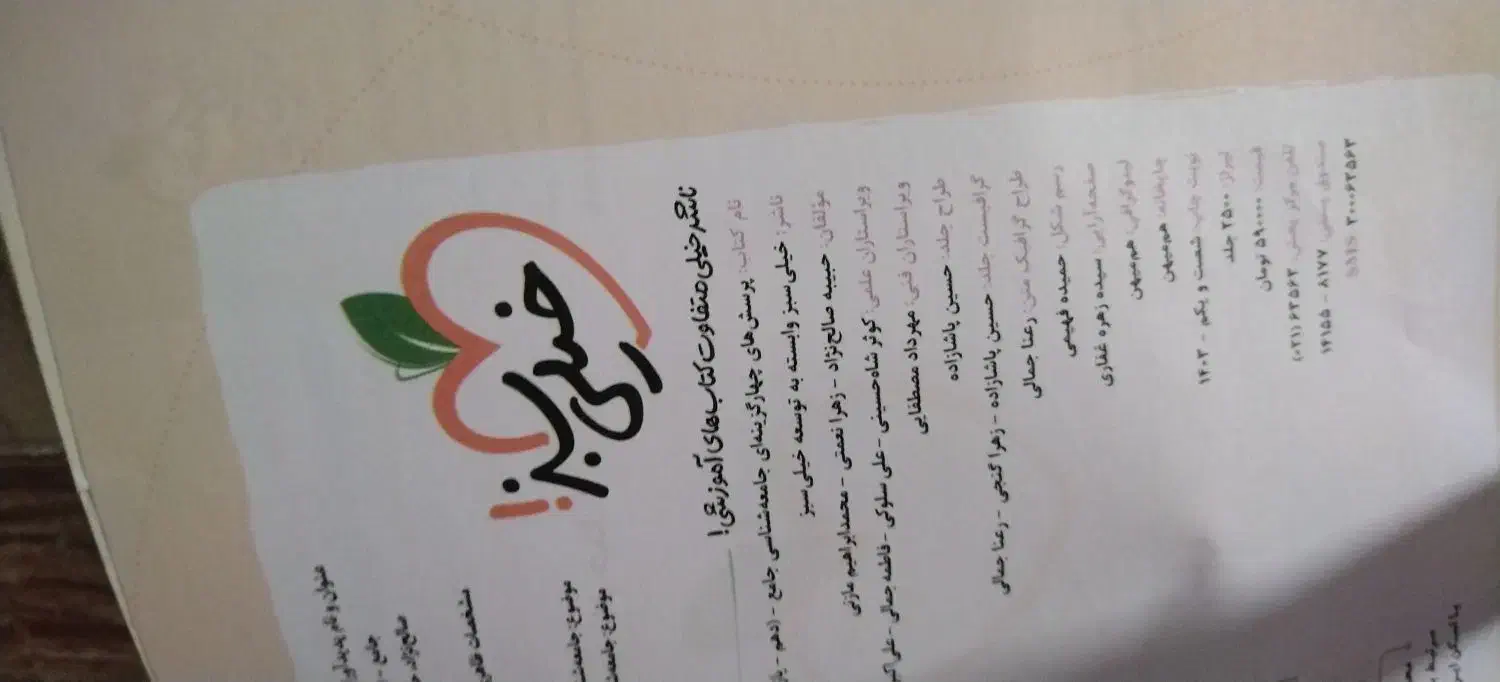 خیلی سبز!
ناشر خیلی متفاوت کتاب‌های آموزشی!
نام کتاب: پرسش‌های چهارگزینه‌ای جامعه‌شناسی جامع - (دهم -
ناشر: خیلی سبز وابسته به توسعه خیلی سبز
مؤلفان: حبیبه صالح‌نژاد - زهرا نعمتی - محمدابراهیم مازنی
ویراستاران علمی: کوثر شاه‌حسینی - علی سلوکی - فاطمه جمالی -
ویراستاران فنی: مهرداد مصطفایی
طراح جلد: حسین پاشازاده
گرافیست جلد: حسین پاشازاده - زهرا گنجی - رعنا جمالی
طراح گرافیک متن: رعنا جمالی
رسم شکل: حمیده فهیمی
صفحه‌آرایی: سیده زهره غفاری
لیتوگرافی: هم‌میهن
چاپخانه: هم‌میهن
نوبت چاپ: شصت و یکم - ۱۴۰۳
تیراژ: ۲۵۰۰ جلد
قیمت: ۵۹۰۰۰۰ تومان
تلفن مرکز پخش: ۶۳۵۶۳ (۰۲۱)
صندوق پستی: ۸۱۷۷ - ۱۴۱۵۵
SMS: ۳۰۰۰۶۳۵۶۳
عنوان و نام پدیدآور
جامع -
صالح‌نژاد،
مشخصات ظاهری
موضوع: جامعه‌
موضوع: جامعه‌